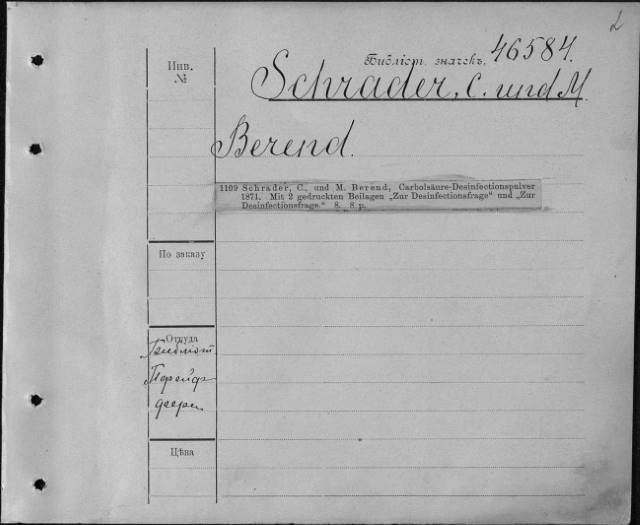 2
Библіот. значекъ. 46584.
Инв.
№
Schrader, C. und M.
Berend.
1109 Schrader, C., und M. Berend, Carbolsäure-Desinfectionspulver
1871. Mit 2 gedruckten Beilagen „Zur Desinfectionsfrage“ und „Zur
Desinfectionsfrage.“ 8. 8 p.
По заказу
Откуда
Библіот
Цѣна